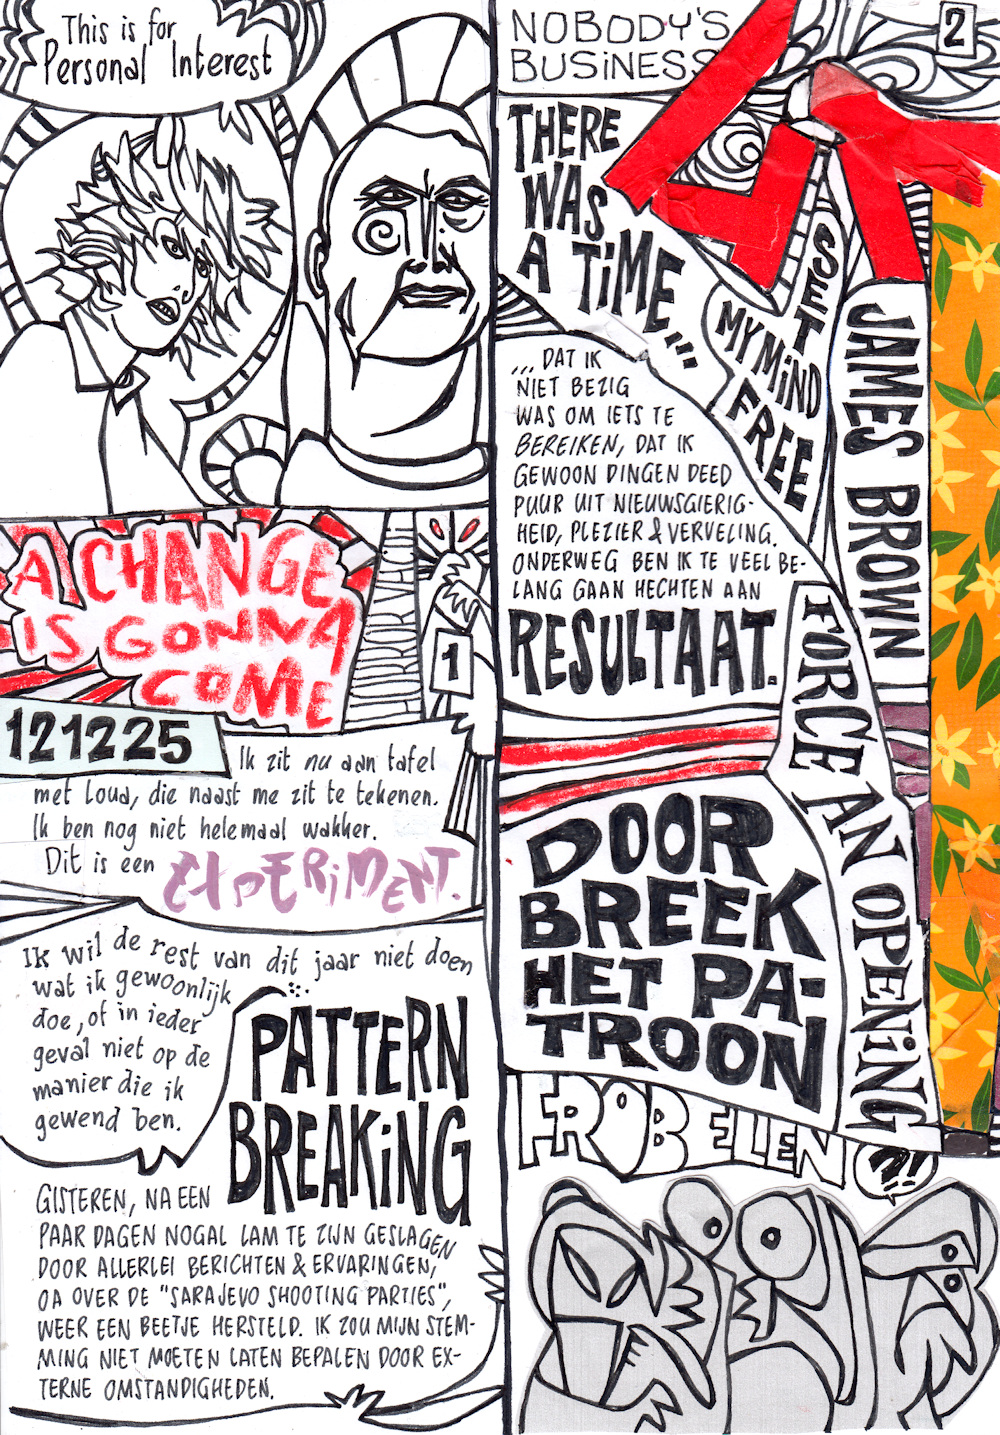 This is for
Personal Interest
A CHANGE
IS GONNA
COME
1
121225
Ik zit nu aan tafel
met Loua, die naast me zit te tekenen.
Ik ben nog niet helemaal wakker.
Dit is een EXPERIMENT.
Ik wil de rest van dit jaar niet doen
wat ik gewoonlijk
doe, of in ieder
geval niet op de
manier die ik
gewend ben.
PATTERN
BREAKING
GISTEREN, NA EEN
PAAR DAGEN NOGAL LAM TE ZIJN GESLAGEN
DOOR ALLERLEI BERICHTEN & ERVARINGEN,
OA OVER DE "SARAJEVO SHOOTING PARTIES",
WEER EEN BEETJE HERSTELD. IK ZOU MIJN STEM-
MING NIET MOETEN LATEN BEPALEN DOOR EX-
TERNE OMSTANDIGHEDEN.
NOBODY'S
BUSINESS
2
THERE
WAS
A TIME...
...DAT IK
NIET BEZIG
WAS OM IETS TE
BEREIKEN, DAT IK
GEWOON DINGEN DEED
PUUR UIT NIEUWSGIERIG-
HEID, PLEZIER & VERVELING.
ONDERWEG BEN IK TE VEEL BE-
LANG GAAN HECHTEN AAN
RESULTAAT.
SET
MY MIND
FREE
JAMES BROWN
FORCE AN OPENING
DOOR
BREEK
HET PA-
TROON
FRÖBELEN
!!!